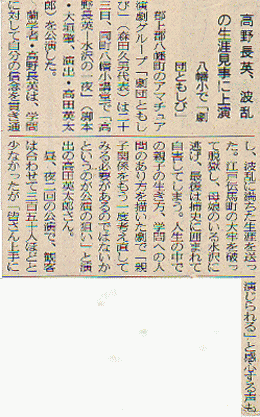 高野長英、波乱
の生涯見事に上演
八幡小で「劇
団ともしび」
郡上郡八幡町のアマチュア
演劇グループ「劇団ともし
び」(森田久男代表)は二十
三日、同町八幡小講堂で「高
野長英―水沢の一夜」(脚本
・大垣肇、演出・高田英太
郎)を公演した。
蘭学者・高野長英は、学問
に対して自分の信念を貫き通
し、波乱に満ちた生涯を送っ
た。江戸伝馬町の大牢を破っ
て脱獄し、母娘のいる水沢に
逃げ、最後は捕吏に囲まれて
自害してしまう。人生の中で
の親子の生き方、学問への人
間のあり方を描いた劇で「親
子関係をもう一度考え直して
みる必要があるのではないか
というのが公演の狙い」と演
出の高田英太郎さん。
昼、夜二回の公演で、観客
は合わせて三百五十人ほどと
少なかったが「皆さん上手に
演じられる」と感心する声も